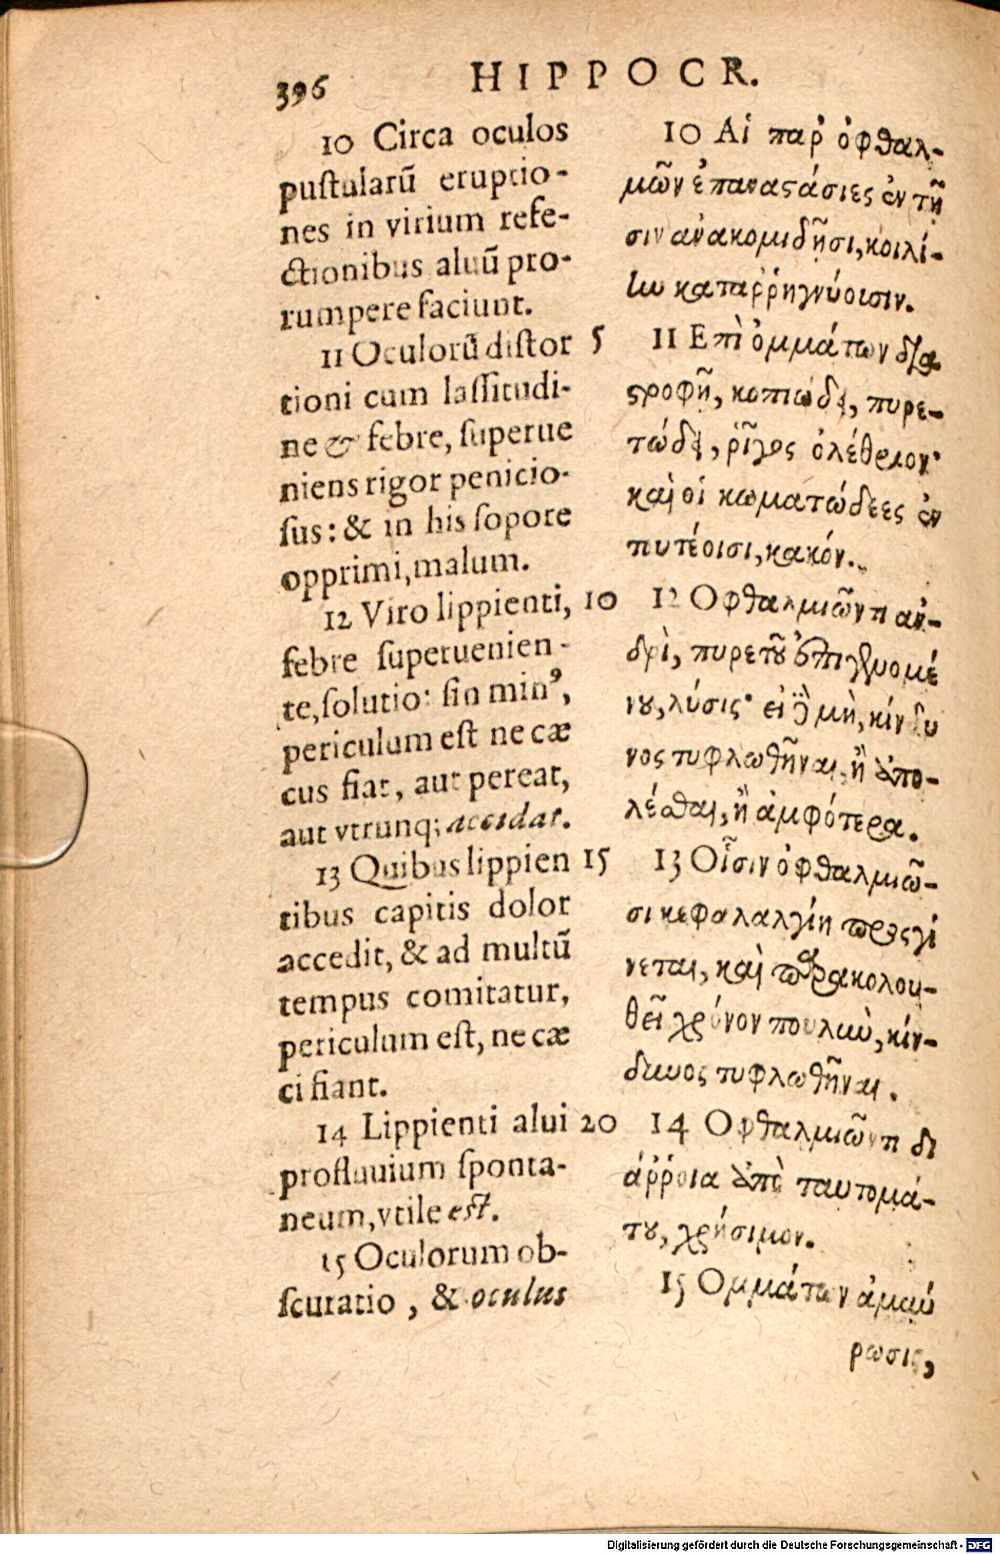 396
HIPPOCR.
10 Circa oculos
pustularū eruptio-
nes in virium refe-
ctionibus aluū pro-
rumpere faciunt.
11 Oculorū distor
tioni cum lassitudi-
ne & febre, superue
niens rigor penicio-
sus: & in his sopore
opprimi, malum.
12 Viro lippienti,
febre superuenien-
te, solutio: sin minꝰ,
periculum est ne cæ
cus fiat, aut pereat,
aut vtrunq; accidat.
13 Quibus lippien
tibus capitis dolor
accedit, & ad multū
tempus comitatur,
periculum est, ne cæ
ci fiant.
14 Lippienti alui
profluuium sponta-
neum, vtile est.
15 Oculorum ob-
scuratio, & oculus
5
10
15
20
10 Αἱ παρ' ὀφθαλ-
μῶν ἐπαναστάσιες ἐν τῇ
σιν ἀνακομιδῇσι, κοιλί-
ην καταῤῥηγνύουσιν.
11 Επὶ ὀμμάτων δια
στροφῇ, κοπιώδει, πυρε-
τώδει, ῥῖγος ὀλέθριον·
καὶ οἱ κωματώδεες ἐν
τουτέοισι, κακόν.
12 Οφθαλμιῶντι ἀν-
δρὶ, πυρετοῦ ἐπιγενομέ
νου, λύσις· εἰ δὲ μὴ, κίνδυ
νος τυφλωθῆναι, ἢ ἀπο-
λέσθαι, ἢ ἀμφότερα.
13 Οἷσιν ὀφθαλμιῶ-
σι κεφαλαλγίη προσγί
νεται, καὶ παρακολου-
θεῖ χρόνον πουλὺν, κίν-
δυνος τυφλωθῆναι.
14 Οφθαλμιῶντι δι
άῤῥοια ἀπὸ ταυτομά-
του, χρήσιμον.
15 Ομμάτων ἀμαύ
ρωσις,
Digitalisierung gefördert durch die Deutsche Forschungsgemeinschaft - DFG